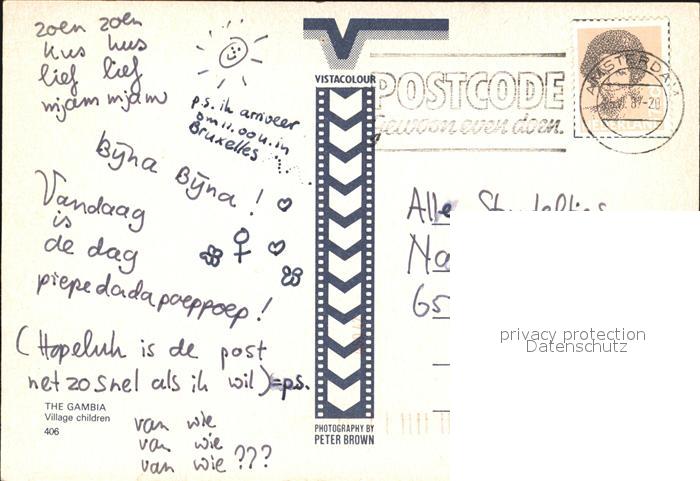 zoen zoen
kus kus
lief lief
mjam mjam
p.s. ik arriveer
om 11.00 u. in
Bruxelles
Bijna Bijna!
Vandaag
is
de dag
piepedadapoeppoep!
(Hopeluk is de post
net zo snel als ik wil)=p.s.
THE GAMBIA
Village children
406
van wie
van wie
van wie???
VISTACOLOUR
PHOTOGRAPHY BY
PETER BROWN
POSTCODE
gewoon even doen.
AMSTERDAM
Alle
Na
65
privacy protection
Datenschutz